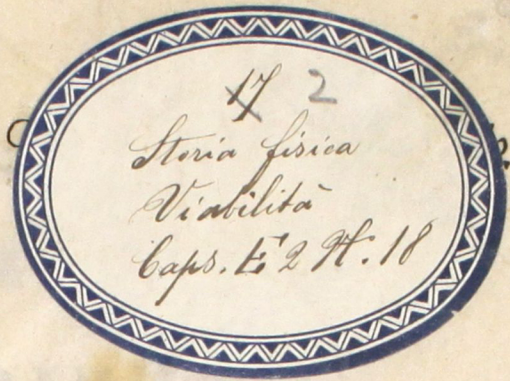 17 2
Storia fisica
Viabilità
Caps. E 2 N. 18